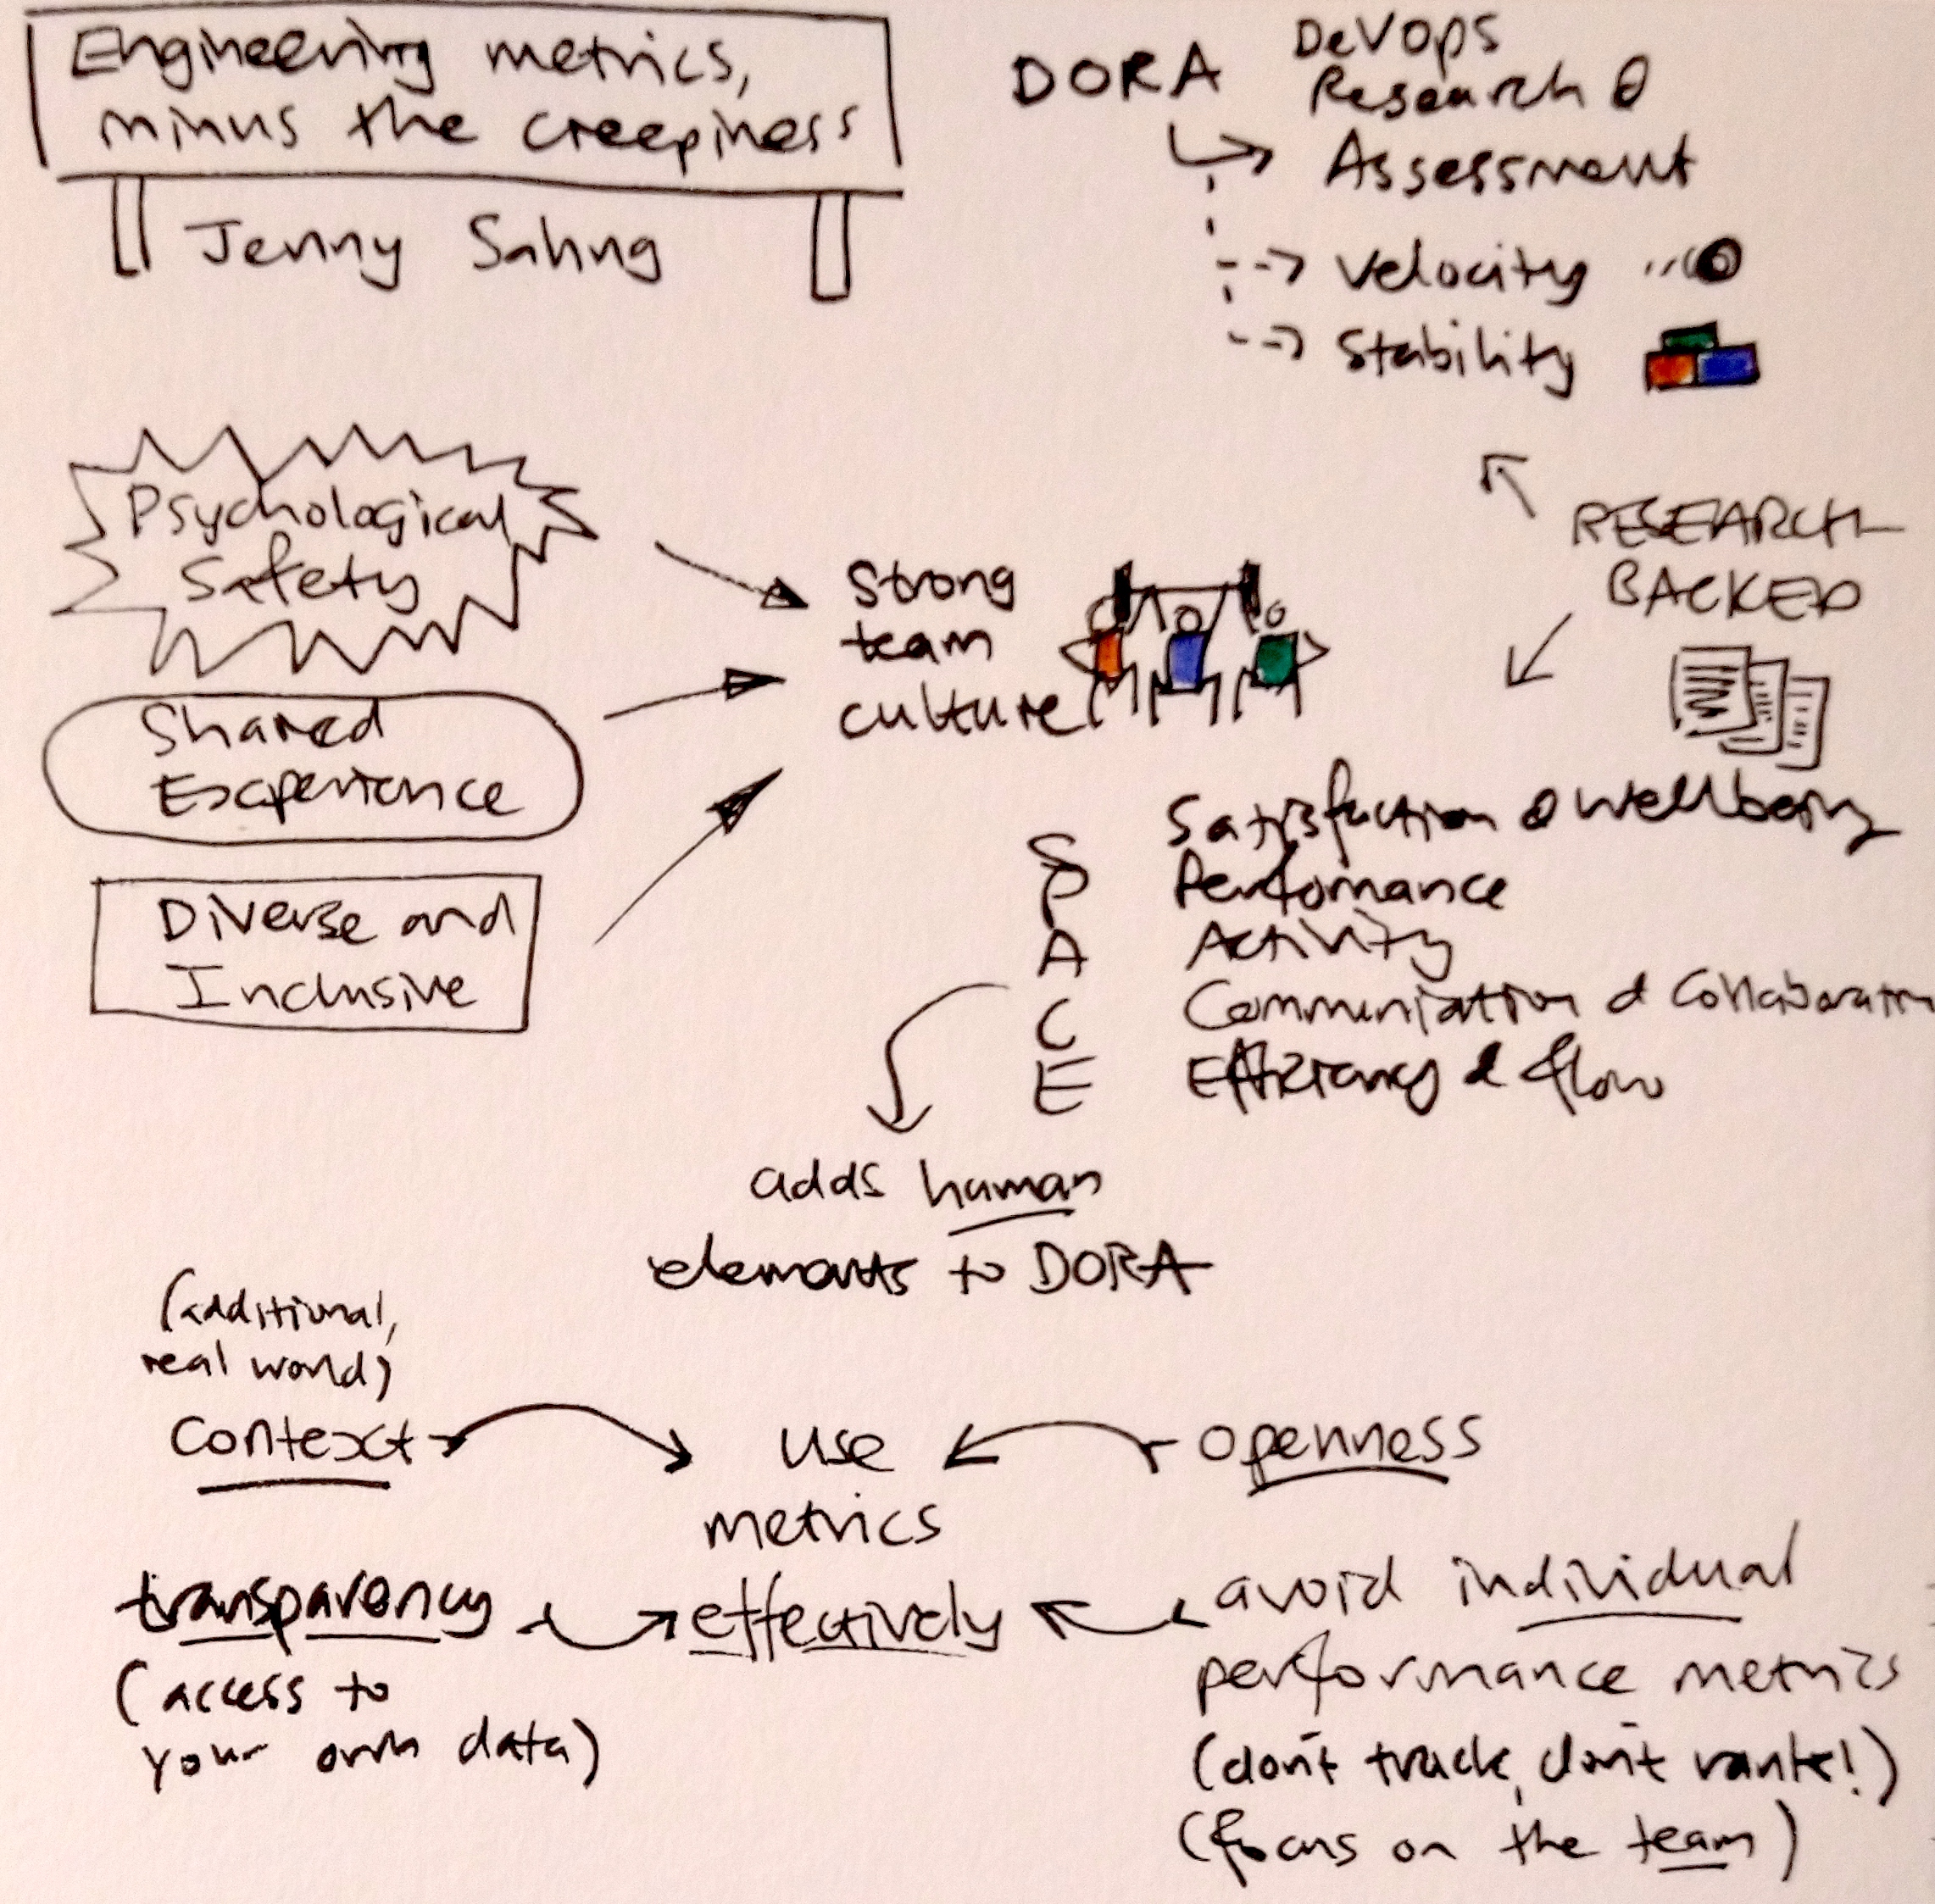 Engineering metrics,
minus the creepiness
Jenny Sahng
DORA
DevOps
Research &
Assessment
Velocity
Stability
RESEARCH
BACKED
Psychological
Safety
Shared
Experience
Diverse and
Inclusive
Strong
team
culture
S Satisfaction & Wellbeing
P Perfomance
A Activity
C Communication & Collaboration
E Efficiency & flow
adds human
elements to DORA
(additional,
real world)
context
use
metrics
effectively
openness
transparency
(access to
your own data)
avoid individual
performance metrics
(don't track, don't rank!)
(focus on the team)